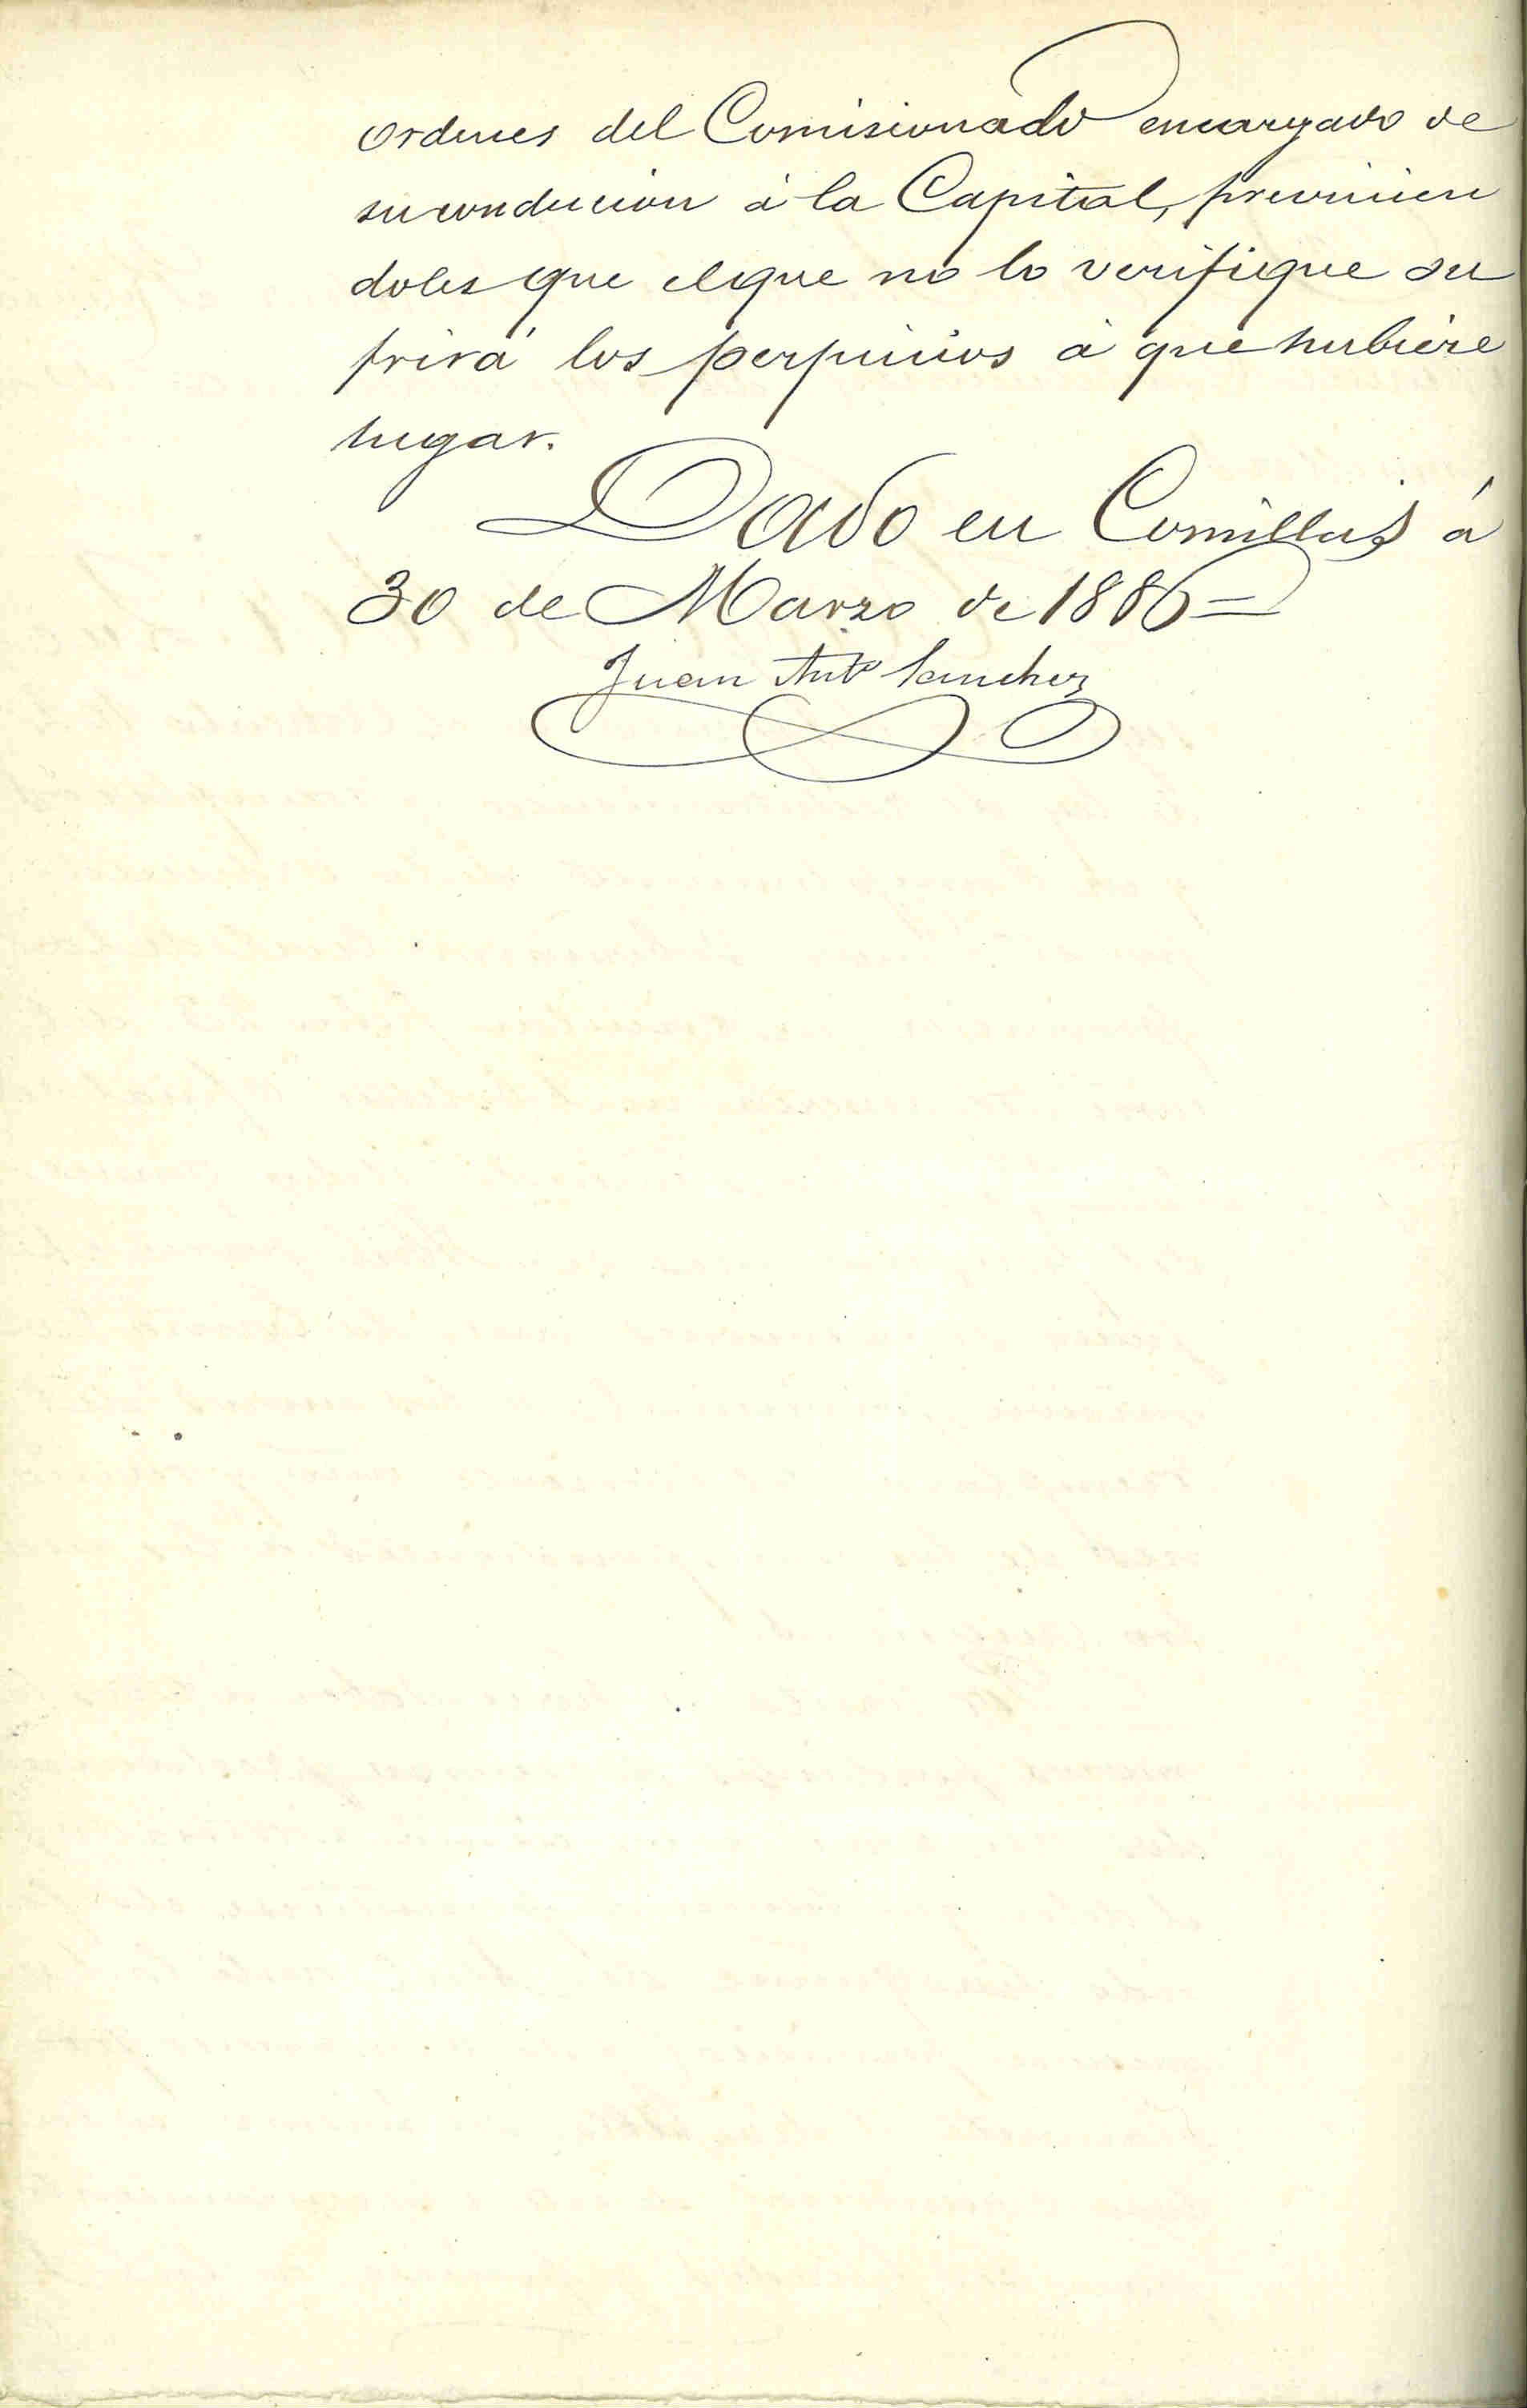 ordenes del Comisionado encargado de
su conducion á la Capital, previnien
doles que el que no lo verifique su
frirá los perjuicios á que hubiere
lugar.
Dado en Comillas á
30 de Marzo de 1886=
Juan Antº Sanchez